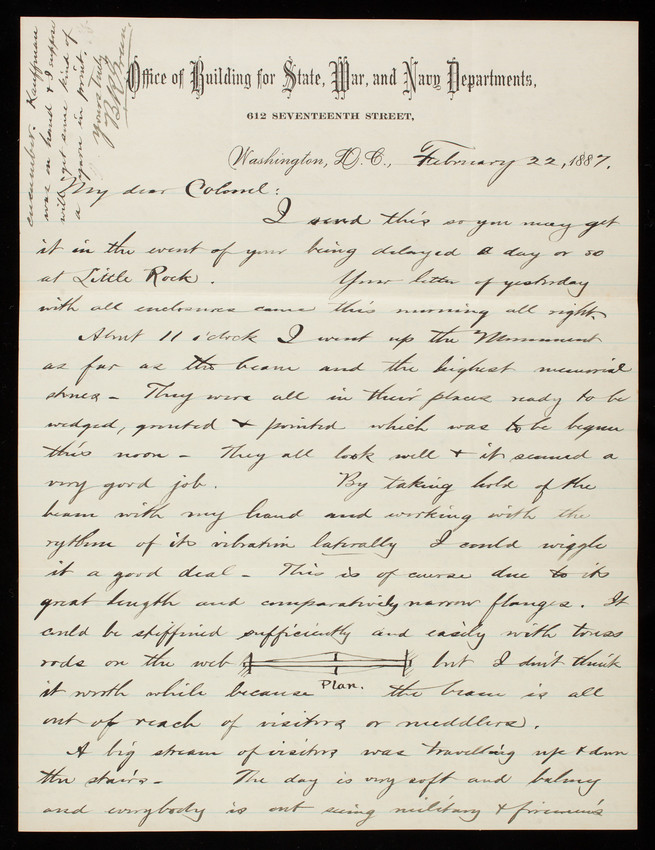 Office of Building for State, War, and Navy Departments,
612 SEVENTEENTH STREET,
Washington, D.C., February 22, 1887.
My dear Colonel:
I send this so you may get
it in the event of your being delayed a day or so
at Little Rock. Your letter of yesterday
with all enclosures came this morning all right.
About 11 o'clock I went up the Monument
as far as the beam and the highest memorial
stones – They were all in their places ready to be
wedged, grouted & pointed which was to be begun
this noon – They all look well & it seemed a
very good job. By taking hold of the
beam with my hand and working with the
rythm of its vibration laterally I could wiggle
it a good deal – This is of course due to its
great length and comparatively narrow flanges. It
could be stiffined sufficiently and easily with truss
rods on the web but I don't think
Plan.
it worth while because the beam is all
out of reach of visitors or meddlers.
A big stream of visitors was travelling up & down
the stairs – The day is very soft and balmy
and everybody is out seeing military & firemen's
cucumber. Kauffman
was on hand & I suppose
will get some kind of
a in print.
Yours truly